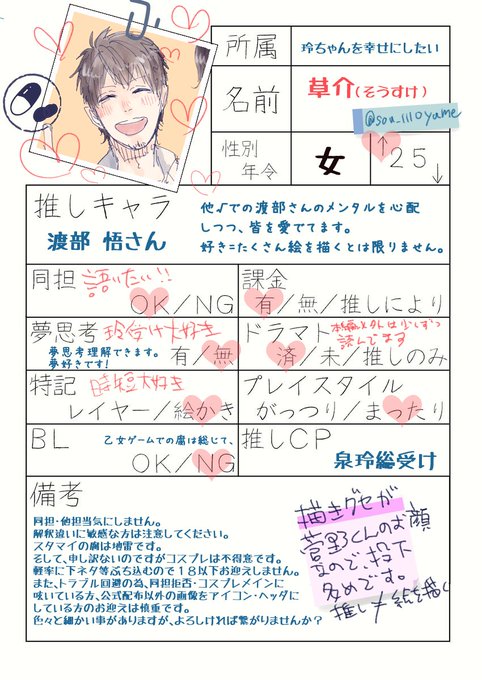 所属
玲ちゃんを幸せにしたい
名前
草介(そうすけ)
@sou_1110yame
性別
年令
女
↑25↓
推しキャラ
渡部 悟さん
他√での渡部さんのメンタルを心配
しつつ、皆を愛でてます。
好き=たくさん絵を描くとは限りません。
同担 語りたい!!
OK/NG
課金
有/無/推しにより
夢思考 玲受け大好き
夢思考理解できます。
夢好きです!
有/無
ドラマト 本編以外は少しずつ
読んでます
済/未/推しのみ
特記 時短大好き
レイヤー/絵かき
プレイスタイル
がっつり/まったり
BL
乙女ゲームでの腐は総じて、
OK/NG
推しCP
泉玲総受け
備考
同担・他担当気にしません。
解釈違いに敏感な方は注意してください。
スタマイの腐は地雷です。
そして、申し訳ないのですがコスプレは不得意です。
軽率に下ネタ等ぶち込むので18以下お迎えしません。
また、トラブル回避の為、同担拒否・コスプレメインに
呟いている方、公式配布以外の画像をアイコン・ヘッダに
している方のお迎えは慎重です。
色々と細かい事がありますが、よろしければ繋がりませんか?
描きグセが
菅野くんのお顔
なので、投下
多めです。
推し≠絵を描く